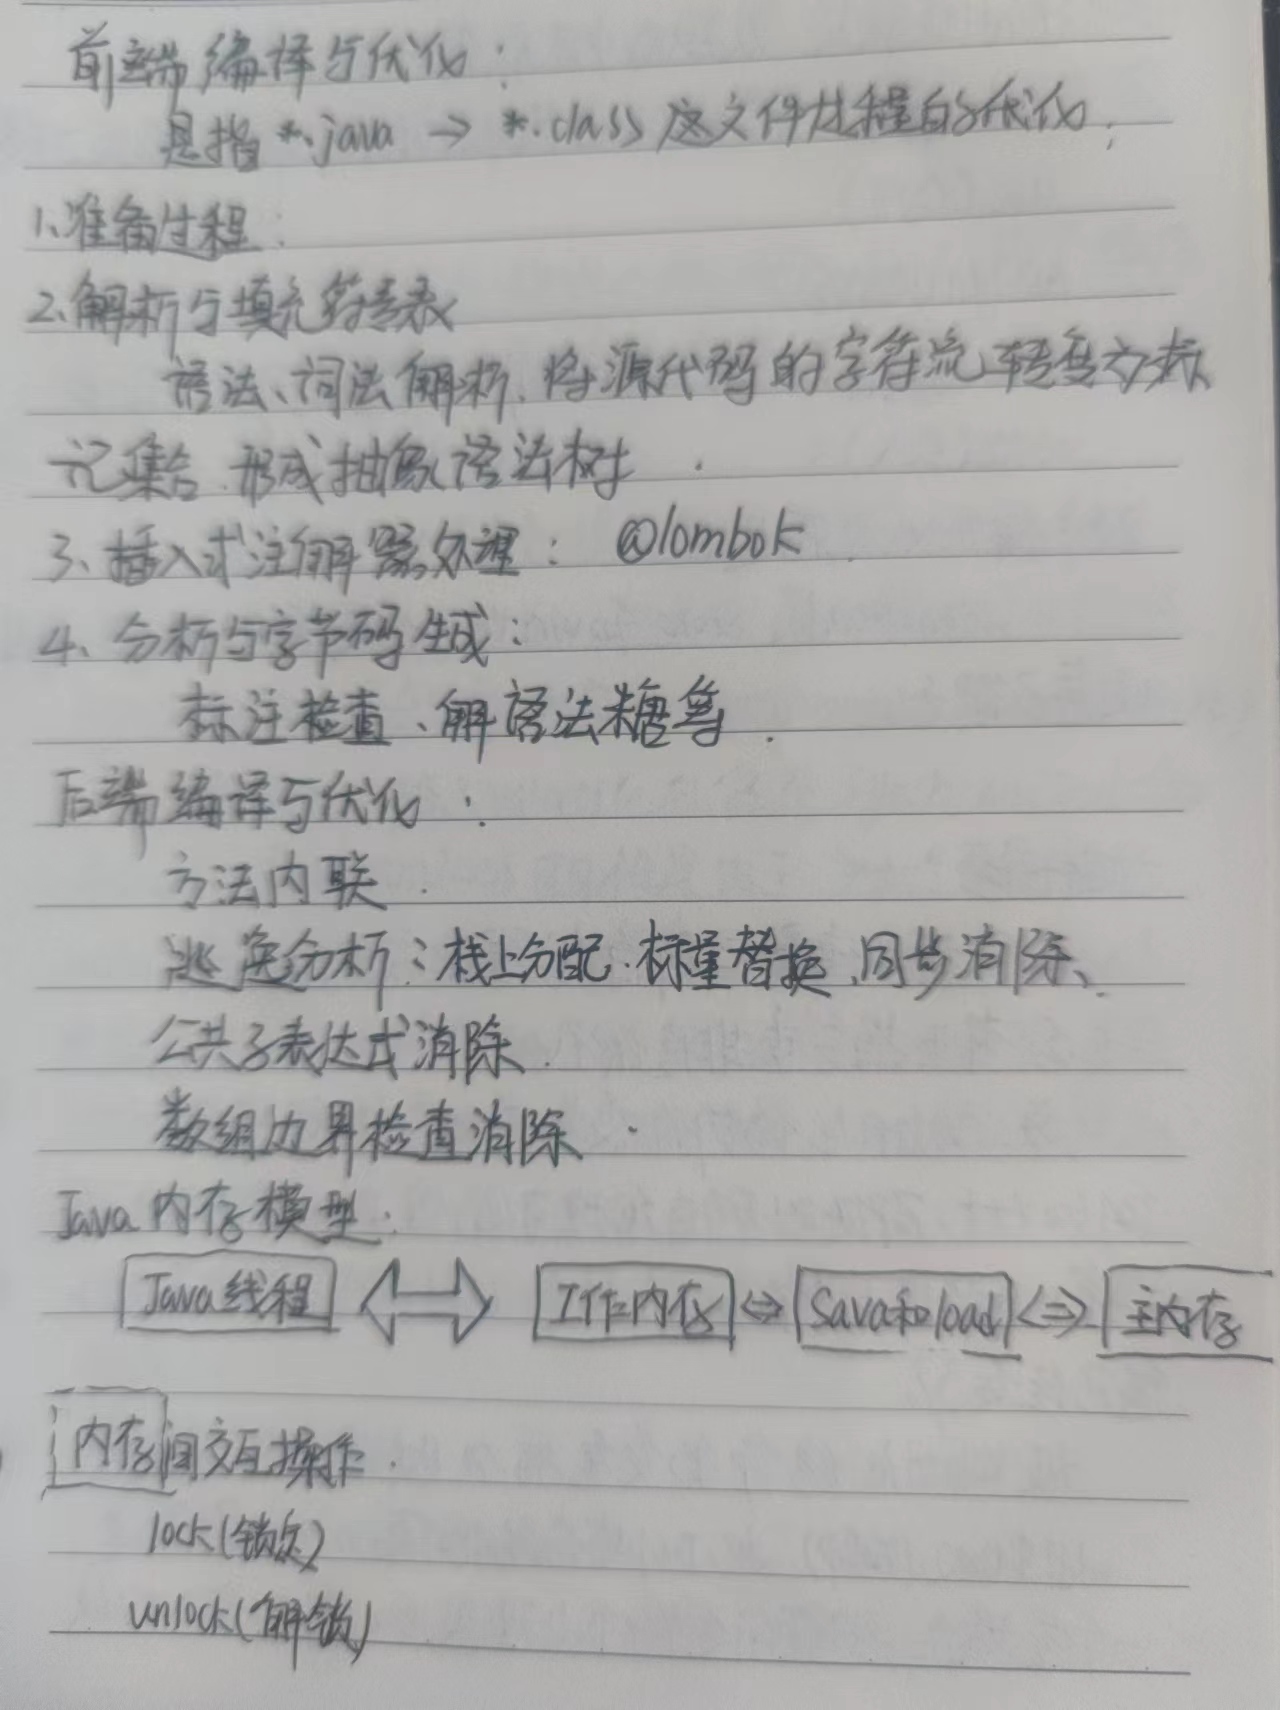 前端编译与优化：
是指 *.java → *.class 这文件过程的优化，
1、准备过程：
2、解析与填充符号表
语法、词法解析、将源代码的字符流转变为标
记集合、形成抽象语法树．
3、插入式注解器处理： @lombok
4、分析与字节码生成：
标注检查、解语法糖等．
后端编译与优化：
方法内联．
逃逸分析：栈上分配、标量替换、同步消除、
公共子表达式消除．
数组边界检查消除．
Java 内存模型．
Java线程 ⇔ 工作内存 ⇔ Sava和load ⇔ 主内存
内存间交互操作．
lock(锁定)
unlock(解锁)